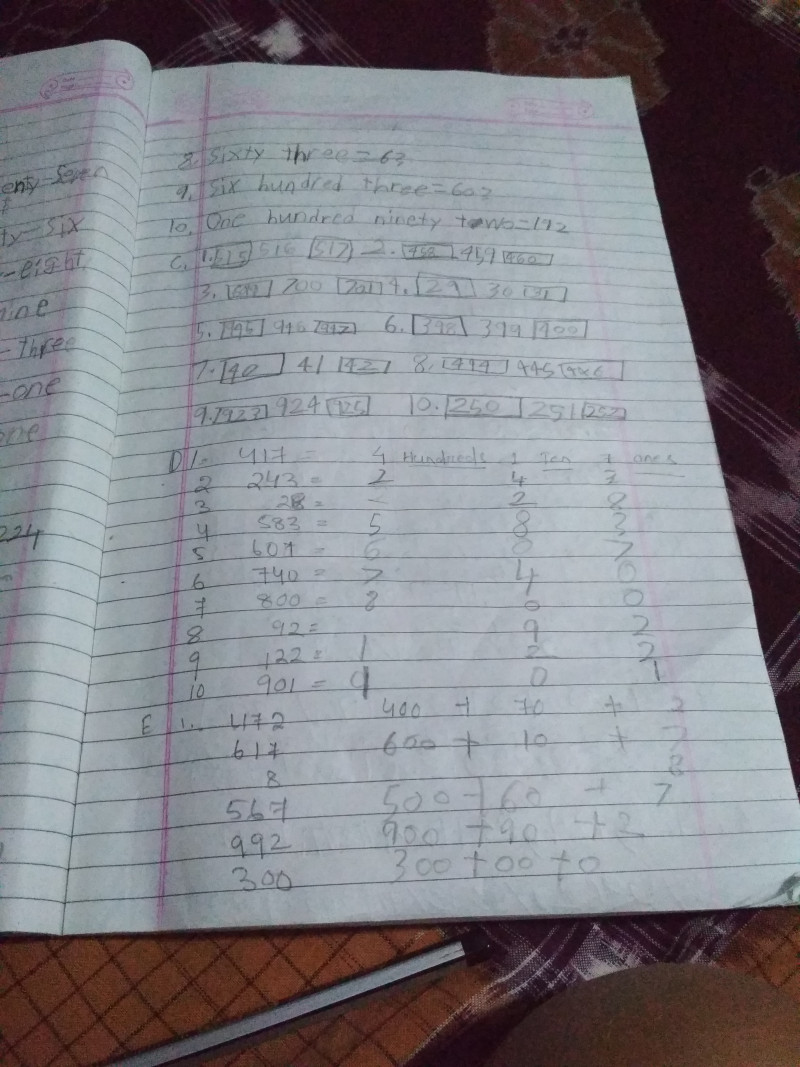 enty-Seven
ty-six
-eight
nine
-three
-one
one
224
8. Sixty three=63
9. Six hundred three=603
10. One hundred ninety two=192
C. 1. 515 516 517 2. 458 459 460
3. 699 700 701 4. 29 30 31
5. 945 946 947 6. 398 399 400
7. 40 41 42 8. 444 445 446
9. 923 924 925 10. 250 251 252
D 1. 417 = 4 Hundreds 1 Ten 7 ones
2 243 = 2 4 3
3 28 = - 2 8
4 583 = 5 8 3
5 607 = 6 0 7
6 740 = 7 4 0
7 800 = 8 0 0
8 92= 9 2
9 122 = 1 2 2
10 901 = 9 0 1
E 1. 472 400 + 70 + 2
617 600 + 10 + 7
8 8
567 500+60 + 7
992 900 +90 +2
300 300+00+0